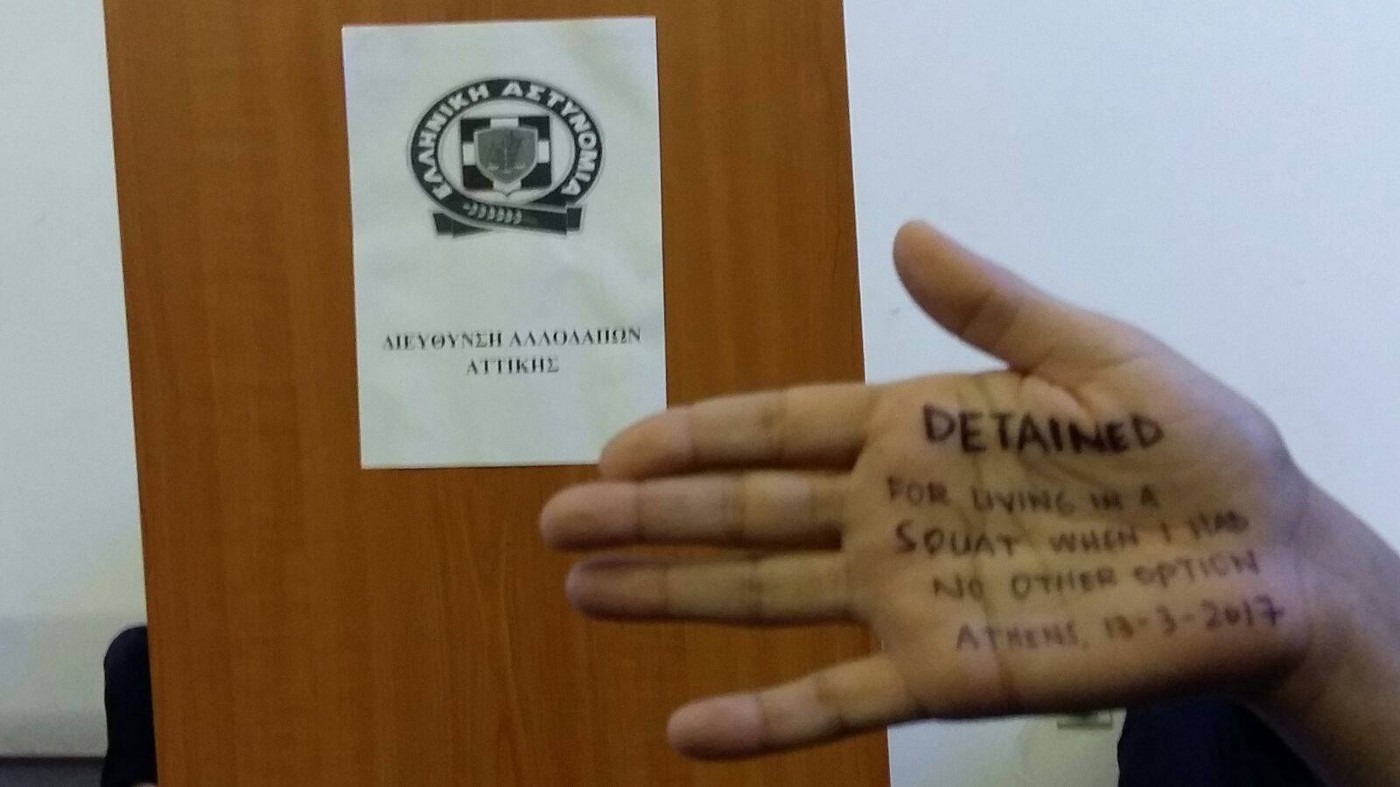 ΕΛΛΗΝΙΚΗ ΑΣΤΥΝΟΜΙΑ
ΔΙΕΥΘΥΝΣΗ ΑΛΛΟΔΑΠΩΝ
ΑΤΤΙΚΗΣ
DETAINED
FOR LIVING IN A
SQUAT WHEN I HAD
NO OTHER OPTION
ATHENS, 13-3-2017